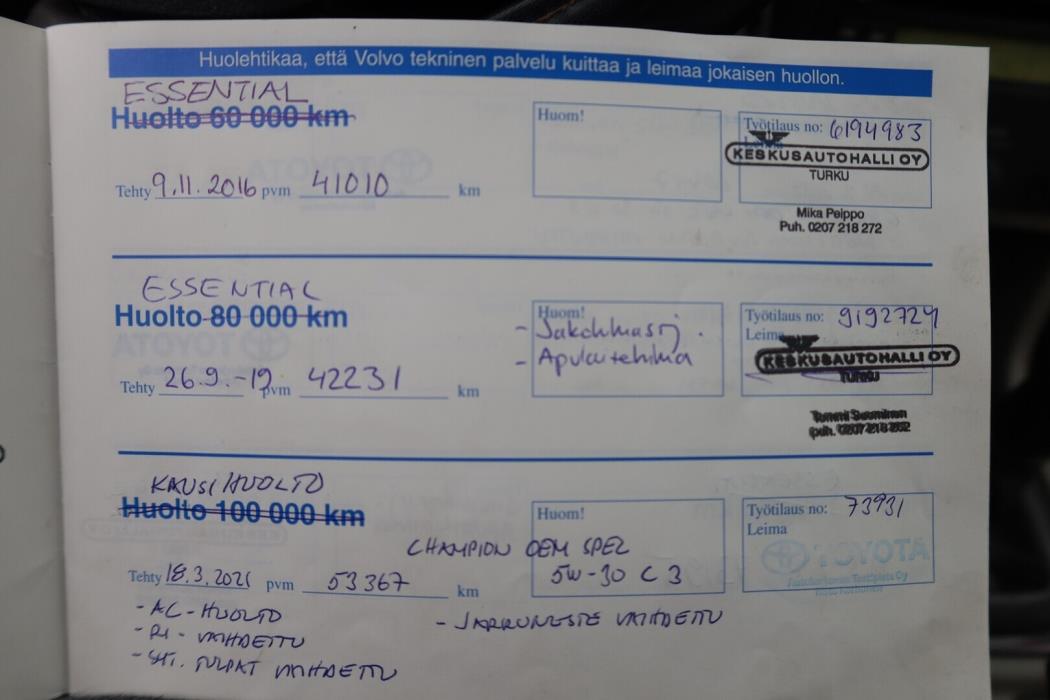 Huolehtikaa, että Volvo tekninen palvelu kuittaa ja leimaa jokaisen huollon.
ESSENTIAL
Huolto 60 000 km
Huom!
Työtilaus no: 6194983
KESKUSAUTOHALLI OY
TURKU
Tehty 9.11.2016 pvm 41010 km
Mika Peippo
Puh. 0207 218 272
ESSENTIAL
Huolto 80 000 km
Huom!
- Jakohihnasrj.
- Apulaitehihna
Työtilaus no: 9192724
Leima
KESKUSAUTOHALLI OY
TURKU
Tehty 26.9.-19 pvm 42231 km
Tommi Suominen
puh. 0207 218 262
KAUSIHUOLTO
Huolto 100 000 km
Huom!
Työtilaus no: 73931
Leima
CHAMPION OEM SPEC
5W-30 C3
TOYOTA
Tehty 18.3.2021 pvm 53367 km
- AC-HUOLTO
- JARRUNESTE VAIHDETTU
- RI- VAIHDETTU
- SYT. TULPAT VAIHDETTU